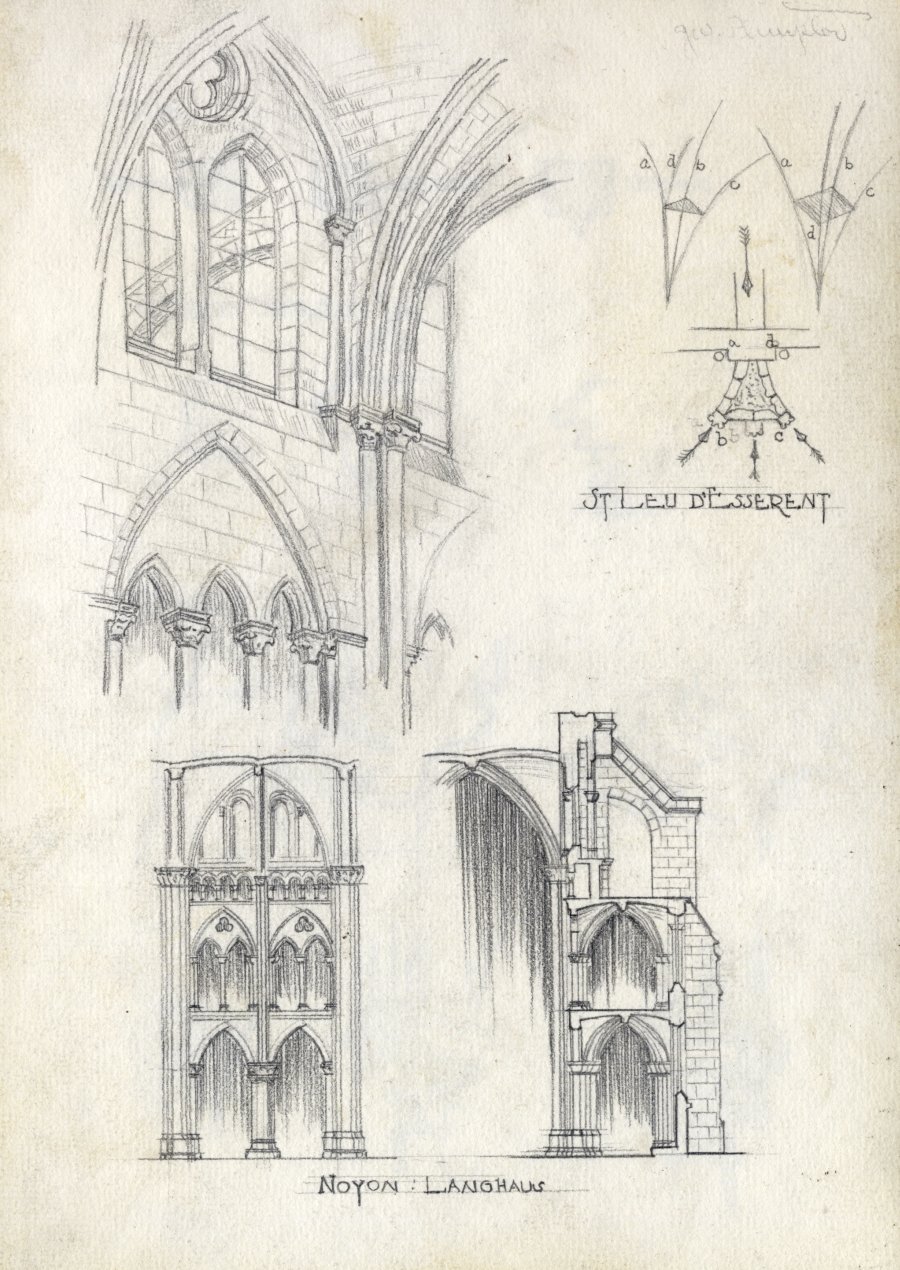 a d b c a b c
d
a d
a b b c
ST. LEU D'ESSERENT
NOYON : LANGHAUS